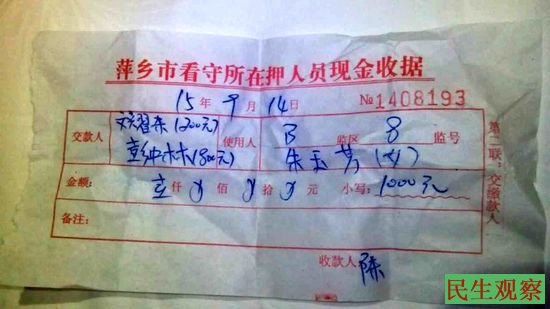 萍乡市看守所在押人员现金收据
15年9月14日 №1408193
交款人 (200元) 使用人 B 监区 8 监号
(800元) 朱玉芳(女)
金额: 壹仟 佰 拾 元 小写: 1000元
备注:
收款人 陈
第二联:交缴款人
民生观察